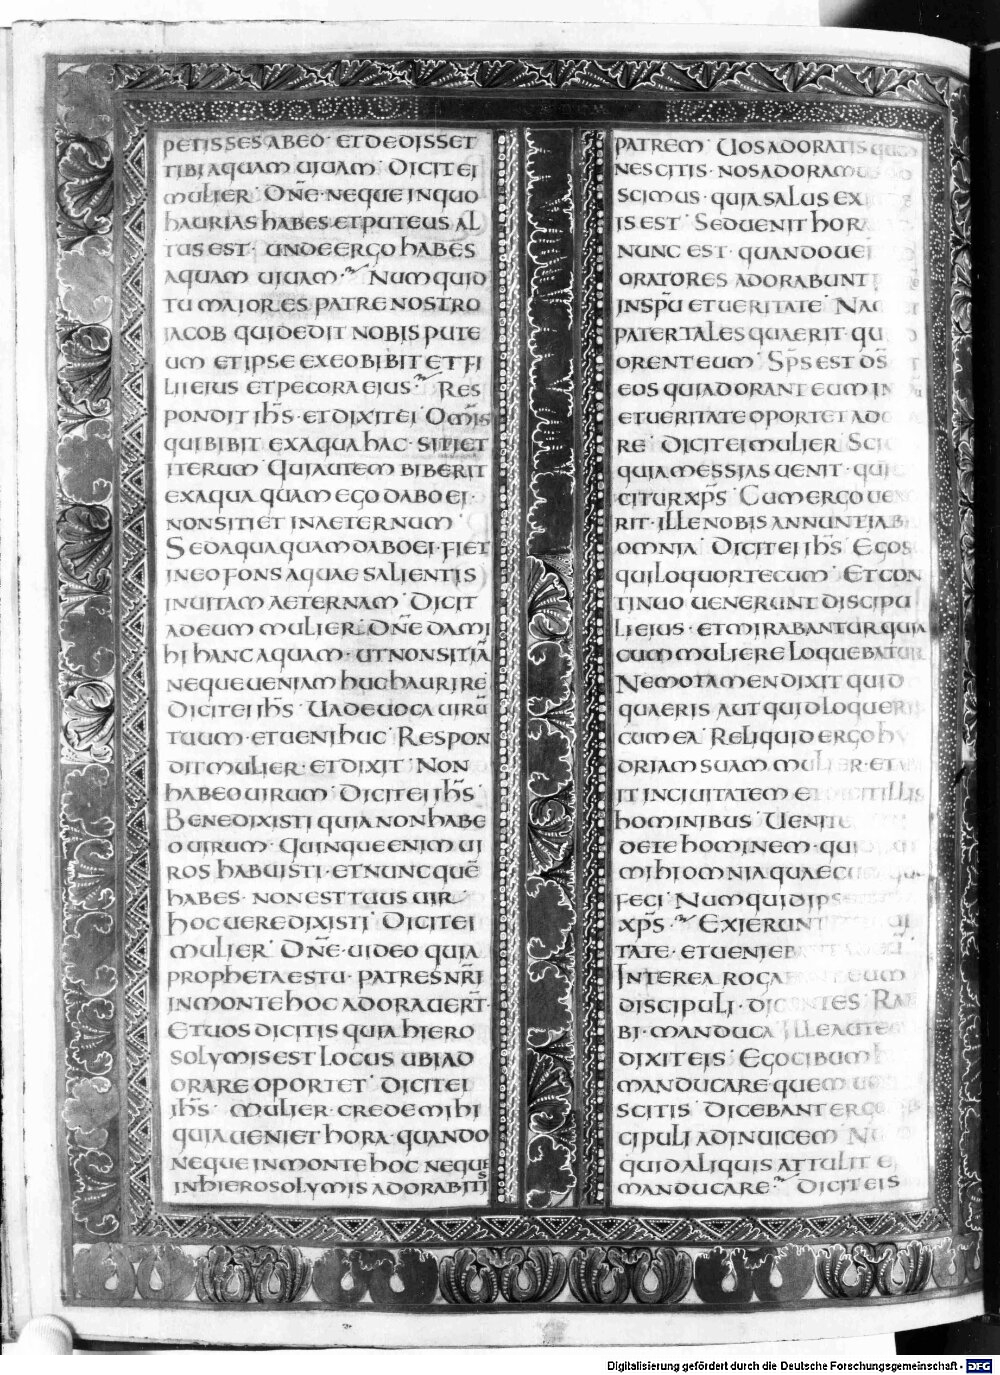 PETISSES AB EO · ET DEDISSET
TIBI AQUAM UIUAM · DICIT EI
MULIER · DN̄E · NEQUE IN QUO
HAURIAS HABES · ET PUTEUS AL
TUS EST · UNDE ERGO HABES
AQUAM UIUAM · NUMQUID
TU MAIOR ES PATRE NOSTRO
IACOB QUI DEDIT NOBIS PUTE
UM ET IPSE EX EO BIBIT ET FI
LII EIUS ET PECORA EIUS · RES
PONDIT IH̄S · ET DIXIT EI · OM̄IS
QUI BIBIT EX AQUA HAC · SITIET
ITERUM · QUI AUTEM BIBERIT
EX AQUA QUAM EGO DABO EI ·
NON SITIET IN AETERNUM ·
SED AQUA QUAM DABO EI · FIET
IN EO FONS AQUAE SALIENTIS
IN UITAM AETERNAM · DICIT
AD EUM MULIER · DN̄E DA MI
HI HANC AQUAM · UT NON SITIĀ
NEQUE UENIAM HUC HAURIRE
DICIT EI IH̄S · UADE UOCA UIRŪ
TUUM · ET UENI HUC · RESPON
DIT MULIER · ET DIXIT · NON
HABEO UIRUM · DICIT EI IH̄S
BENE DIXISTI QUIA NON HABE
O UIRUM · QUINQUE ENIM UI
ROS HABUISTI · ET NUNC QUĒ
HABES · NON EST TUUS UIR
HOC UERE DIXISTI · DICIT EI
MULIER · DN̄E · UIDEO QUIA
PROPHETA ES TU · PATRES NR̄I
IN MONTE HOC ADORAUER̄T ·
ET UOS DICITIS QUIA HIERO
SOLYMIS EST LOCUS UBI AD
ORARE OPORTET · DICIT EI
IH̄S · MULIER · CREDE MIHI
QUIA UENIET HORA · QUANDO
NEQUE IN MONTE HOC NEQUE
IN HIEROSOLYMIS ADORABITIS
PATREM · UOS ADORATIS
NESCITIS · NOS ADORAMUS
SCIMUS · QUIA SALUS EX
IS EST · SED UENIT HORA
NUNC EST · QUANDO UERI
ORATORES ADORABUNT
IN SPŪ ET UERITATE · NAM
PATER TALES QUAERIT · QUI
ORENT EUM · SP̄S EST D̄S
EOS QUI ADORANT EUM IN
ET UERITATE OPORTET ADO
RE · DICIT EI MULIER · SCIO
QUIA MESSIAS UENIT · QUI
CITUR XP̄S · CUM ERGO UENE
RIT · ILLE NOBIS ANNUNTIABIT
OMNIA · DICIT EI IH̄S · EGO S
QUI LOQUOR TECUM · ET CON
TINUO UENERUNT DISCIPU
LI EIUS · ET MIRABANTUR QUIA
CUM MULIERE LOQUEBATUR
NEMO TAMEN DIXIT QUID
QUAERIS AUT QUID LOQUERIS
CUM EA · RELIQUID ERGO HY
DRIAM SUAM MULIER · ET AB
IIT IN CIUITATEM ET DICIT ILLIS
HOMINIBUS · UENITE
DETE HOMINEM · QUI
MIHI OMNIA QUAECU
FECI · NUMQUID IPSE
XP̄S · EXIERUNT
TATE · ET UENIEBANT
INTEREA ROGABANT EUM
DISCIPULI · DICENTES · RAB
BI · MANDUCA · ILLE AUTEM
DIXIT EIS · EGO CIBUM
MANDUCARE QUEM UOS
SCITIS · DICEBANT ERGO
CIPULI AD INUICEM · NUM
QUID ALIQUIS ATTULIT EI
MANDUCARE · DICIT EIS
Digitalisierung gefördert durch die Deutsche Forschungsgemeinschaft - DFG